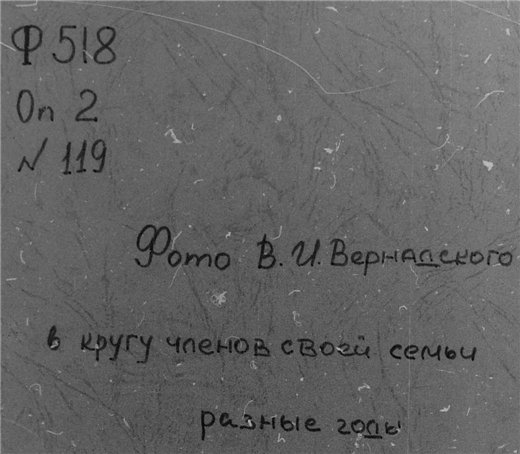 Ф 518
Оп 2
N 119
Фото В. И. Вернадского
в кругу членов своей семьи
разные годы